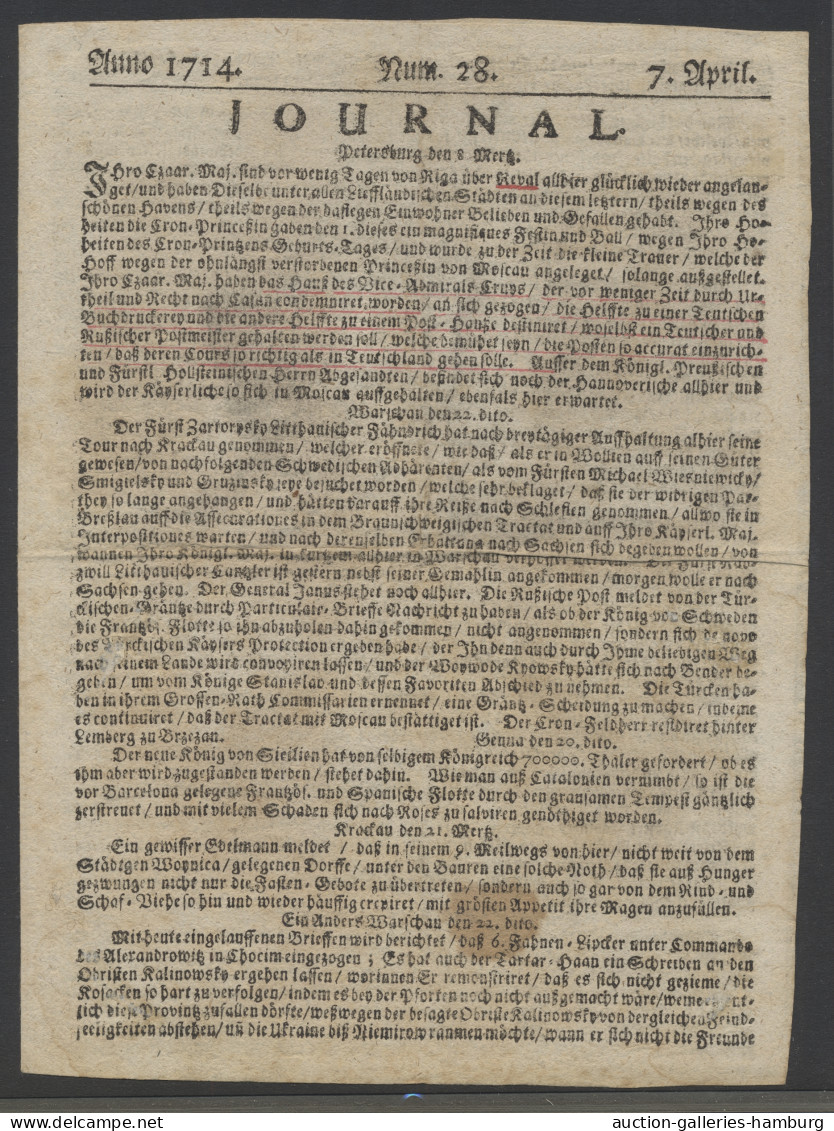 Anno 1714. Num. 28. 7. April.
JOURNAL.
Petersburg den 8 Mertz.
IHro Czaar. Maj. sind vor wenig Tagen von Riga über Reval allhier glücklich wieder angelan-
get / und haben Dieselbe unter allen Liefländischen Städten an diesem letztern / theils wegen des
schönen Havens / theils wegen der dasiegen Einwohner Belieben und Gefallen gehabt. Ihre Ho-
heiten die Cron-Princeßin gaben den 1. dieses ein magnifiques Festin und Ball / wegen Ihro Ho-
heiten des Cron-Printzens Geburts-Tages / und wurde zu der Zeit die kleine Trauer / welche der
Hoff wegen der ohnlängst verstorbenen Princeßin von Moscau angeleget / solange außgestellet.
Ihro Czaar. Maj. haben das Hauß des Vice-Admirals Cruys / der vor weniger Zeit durch Ur-
theil und Recht nach Casan condemniret worden / an sich gezogen / die Helffte zu einer Teutschen
Buchdruckerey und die andere Helffte zu einem Post-Hause destiniret / woselbst ein Teutscher und
Rußischer Postmeister gehalten werden soll / welche bemühet seyn / die Posten so accurat einzurich-
ten / daß deren Cours so richtig als in Teutschland gehen solle. Ausser dem Königl. Preußischen
und Fürstl Hollsteinischen Herrn Abgesandten / befindet sich noch der Hannoverische allhier und
wird der Käyserliche so sich in Moscau auffgehalten / ebenfals hier erwartet.
Warschau den 22. dito.
Der Fürst Zartorysky Litthauischer Fähnrich hat nach dreytägiger Auffhaltung alhier seine
Tour nach Krackau genommen / welcher eröffnete / wie daß / als er in Wollien auff seinen Güter
gewesen / von nachfolgenden Schwedischen Adhärenten / als vom Fürsten Michael Wiesniewicky /
Smigielsky und Gruzinsky seye besuchet worden / welche sehr beklaget / daß sie der widrigen Par-
they so lange angehangen / und hätten darauff ihre Reiße nach Schlesien genommen / allwo sie in
Breßlau auff die Assecurationes in dem Braunschweigischen Tractat und auff Ihro Käyserl. Maj.
Interpositiones warten / und nach derenselben Erhaltung nach Sachsen sich begeben wollen / von
wannen Ihro Königl. Maj. in kurtzem allhier in Warschau Der Fürst Rad-
zwill Litthauischer Cantzler ist gestern nebst seiner Gemahlin angekommen / morgen wolle er nach
Sachsen gehen. Der General Janus stehet noch allhier. Die Rußische Post meldet von der Tür-
ckischen-Gräntze durch Particulair-Brieffe Nachricht zu haben / als ob der König von Schweden
die Frantzös. Flotte so ihn abzuholen dahin gekommen / nicht angenommen / sondern sich de novo
des Türckischen Käysers Protection ergeben habe / der Ihn denn auch durch Ihme beliebigen Weg
nach seinem Lande wird convoyiren lassen / und der Woywode Kyowsky hätte sich nach Bender be-
geben / um vom Könige Stanislao und dessen Favoriten Abschied zu nehmen. Die Türcken ha-
ben in ihrem Grossen-Rath Commissarien ernennet / eine Gräntz-Scheidung zu machen / indeme
es continuiret / daß der Tractat mit Moscau bestättiget ist. Der Cron-Feldherr residiret hinter
Lemberg zu Brzezan. Genua den 20. dito.
Der neue König von Sicilien hat von selbigem Königreich 700000. Thaler gefordert / ob es
ihm aber wird zugestanden werden / stehet dahin. Wie man auß Catalonien vernimbt / so ist die
vor Barcelona gelegene Frantzös. und Spanische Flotte durch den grausamen Tempest gäntzlich
zerstreuet / und mit vielem Schaden sich nach Roses zu salviren genöthiget worden.
Krackau den 21. Mertz.
Ein gewisser Edelmann meldet / daß in seinem 9. Meilwegs von hier / nicht weit von dem
Städtgen Woynica / gelegenen Dorffe / unter den Bauren eine solche Noth / daß sie auß Hunger
gezwungen nicht nur die Fasten-Gebote zu übertreten / sondern auch so gar von dem Rind- und
Schaf-Viehe so hin und wieder häuffig crepiret / mit grösten Appetit ihre Magen anzufüllen.
Ein Anders Warschau den 22. dito.
Mit heute eingelauffenen Brieffen wird berichtet / daß 6. Fahnen-Lipcker unter Commando
des Alexandrowitz in Chocim eingezogen ; Es hat auch der Tartar-Haan ein Schreiben an den
Obristen Kalinowsky ergehen lassen / worinnen Er remonstriret / daß es sich nicht gezieme / die
Kosacken so hart zu verfolgen / indem es bey der Pforten noch nicht außgemacht wäre /
lich diese Provintz zufallen dörfte / weßwegen der besagte Obriste Kalinowsky von dergleichen Feind-
seeligkeiten abstehen / uñ die Ukraine biß Niemirow raumen möchte / wann er sich nicht die Freunde
auction-galleries-hamburg